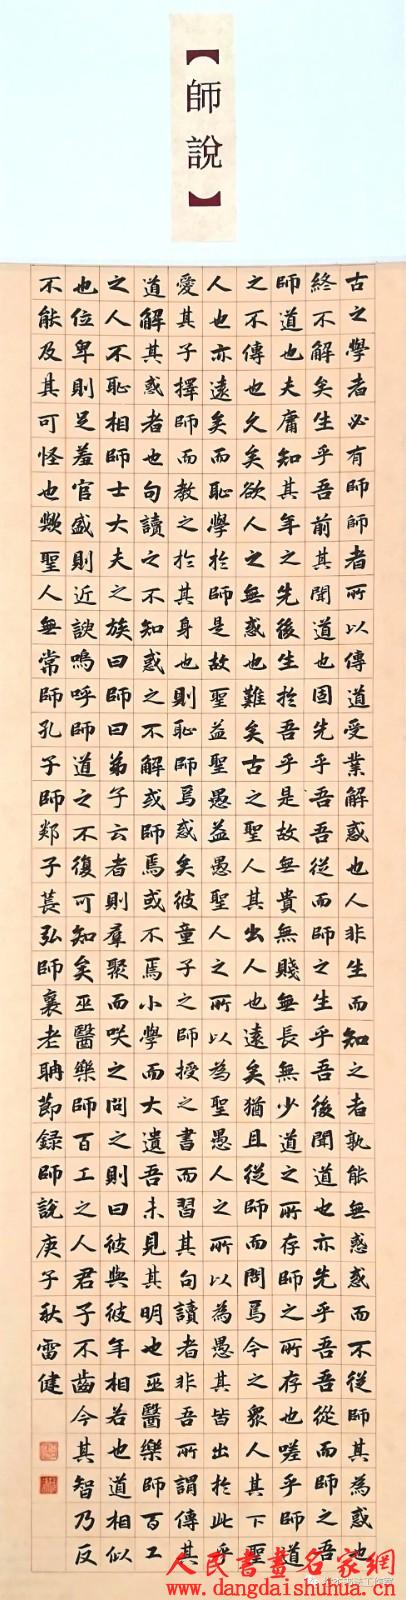 【師說】
古之學者必有師師者所以傳道受業解惑也人非生而知之者孰能無惑惑而不從師其為惑也
終不解矣生乎吾前其聞道也固先乎吾吾從而師之生乎吾後聞道也亦先乎吾吾從而師之吾
師道也夫庸知其年之先後生於吾乎是故無貴無賤無長無少道之所存師之所存也嗟乎師道
之不傳也久矣欲人之無惑也難矣古之聖人其出人也遠矣猶且從師而問焉今之衆人其下聖
人也亦遠矣而恥學於師是故聖益聖愚益愚聖人之所以為聖愚人之所以為愚其皆出於此乎
愛其子擇師而教之於其身也則恥師焉惑矣彼童子之師授之書而習其句讀者非吾所謂傳其
道解其惑者也句讀之不知惑之不解或師焉或不焉小學而大遺吾未見其明也巫醫樂師百工
之人不恥相師士大夫之族曰師曰弟子云者則羣聚而咲之問之則曰彼與彼年相若也道相似
也位卑則足羞官盛則近諛嗚呼師道之不復可知矣巫醫樂師百工之人君子不齒今其智乃反
不能及其可怪也歟聖人無常師孔子師郯子萇弘師襄老聃節録師說庚子秋雷健
人民書畫名家網
www.dangdaishuhua.cn